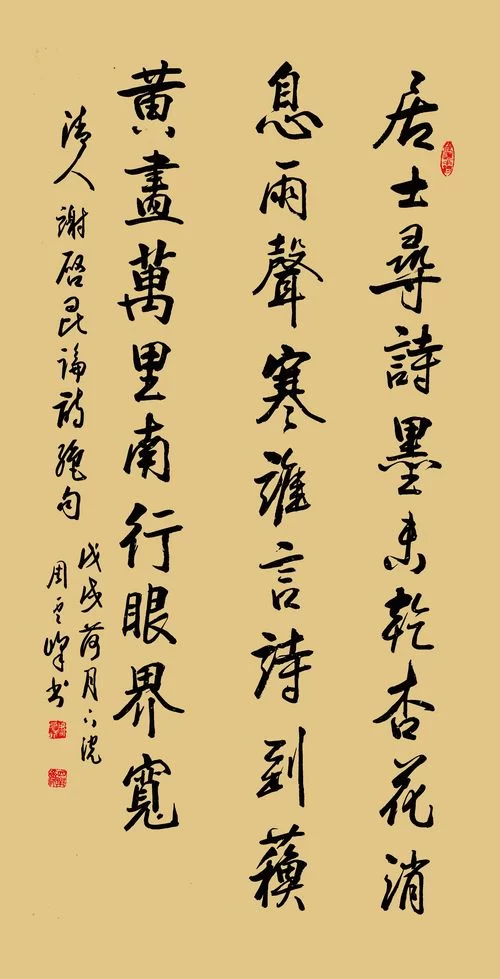 居士尋詩墨未乾杏花消
息雨聲寒誰言詩到蘓
黃盡萬里南行眼界寬
清人謝启昆論詩絕句
戊戌荷月下浣
周雲峰书